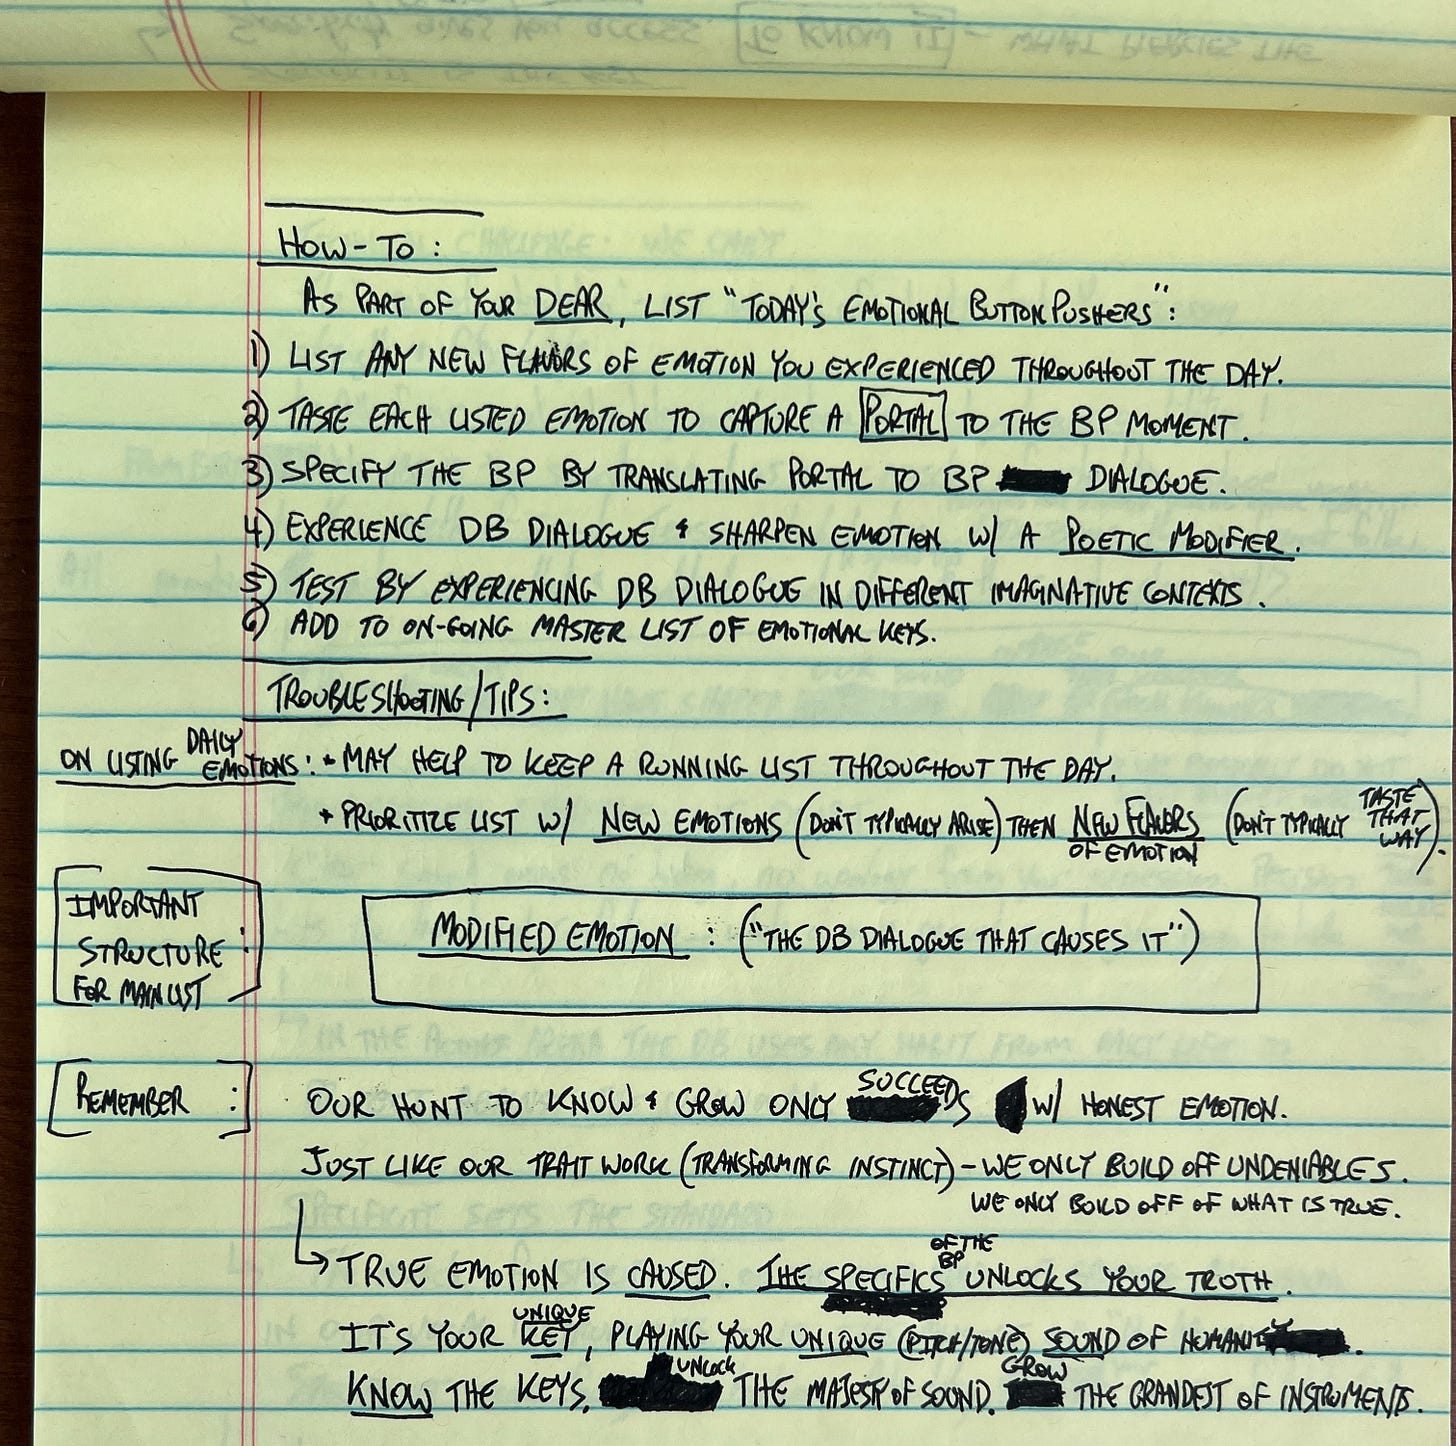 HOW-TO:
AS PART OF YOUR DEAR, LIST "TODAY'S EMOTIONAL BUTTON PUSHERS":
1) LIST ANY NEW FLAVORS OF EMOTION YOU EXPERIENCED THROUGHOUT THE DAY.
2) TASTE EACH LISTED EMOTION TO CAPTURE A PORTAL TO THE BP MOMENT.
3) SPECIFY THE BP BY TRANSLATING PORTAL TO BP DIALOGUE.
4) EXPERIENCE DB DIALOGUE & SHARPEN EMOTION W/ A POETIC MODIFIER.
5) TEST BY EXPERIENCING DB DIALOGUE IN DIFFERENT IMAGINATIVE CONTEXTS.
6) ADD TO ON-GOING MASTER LIST OF EMOTIONAL KEYS.
TROUBLESHOOTING/TIPS:
ON LISTING DAILY EMOTIONS: * MAY HELP TO KEEP A RUNNING LIST THROUGHOUT THE DAY.
* PRIORITIZE LIST W/ NEW EMOTIONS (DON'T TYPICALLY ARISE) THEN NEW FLAVORS OF EMOTION (DON'T TYPICALLY TASTE THAT WAY).
[IMPORTANT STRUCTURE FOR MAIN LIST:]
MODIFIED EMOTION : ("THE DB DIALOGUE THAT CAUSES IT")
[REMEMBER :]
OUR HUNT TO KNOW & GROW ONLY SUCCEEDS W/ HONEST EMOTION.
JUST LIKE OUR TRAIT WORK (TRANSFORMING INSTINCT) - WE ONLY BUILD OFF UNDENIABLES.
WE ONLY BUILD OFF OF WHAT IS TRUE.
↳ TRUE EMOTION IS CAUSED. THE SPECIFICS OF THE BP UNLOCKS YOUR TRUTH.
IT'S YOUR UNIQUE KEY, PLAYING YOUR UNIQUE (PITCH/TONE) SOUND OF HUMANITY.
KNOW THE KEYS. UNLOCK THE MAJESTY OF SOUND. GROW THE GRANDEST OF INSTRUMENTS.